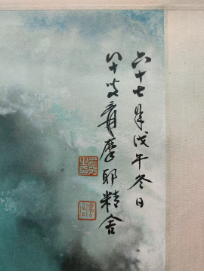 六十七年戊午冬日
八十叟爰摩耶精舍